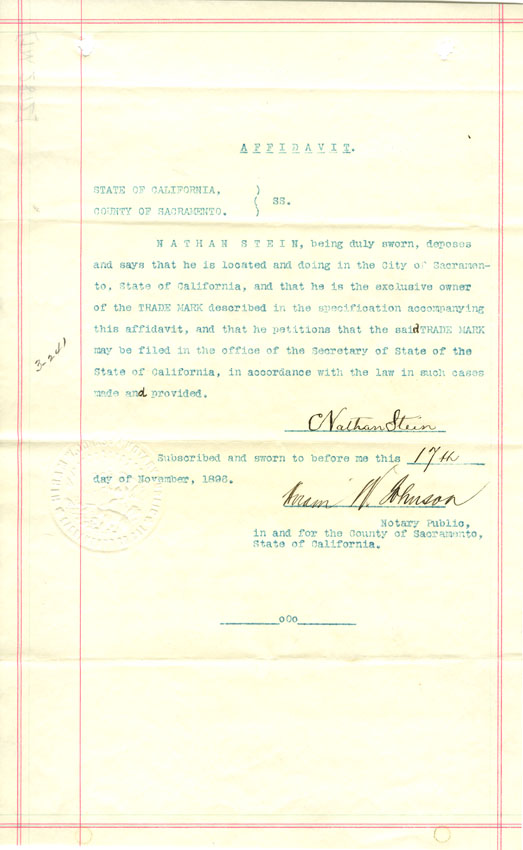 A F F I D A V I T.
STATE OF CALIFORNIA, )
( SS.
COUNTY OF SACRAMENTO. )
N A T H A N  S T E I N, being duly sworn, deposes
and says that he is located and doing in the City of Sacramen-
to, State of California, and that he is the exclusive owner
of the TRADE MARK described in the specification accompanying
this affidavit, and that he petitions that the said TRADE MARK
may be filed in the office of the Secretary of State of the
State of California, in accordance with the law in such cases
made and provided.
Nathan Stein
Subscribed and sworn to before me this 17th
day of November, 1896.
Hiram W. Johnson
Notary Public,
in and for the County of Sacramento,
State of California.
oOo